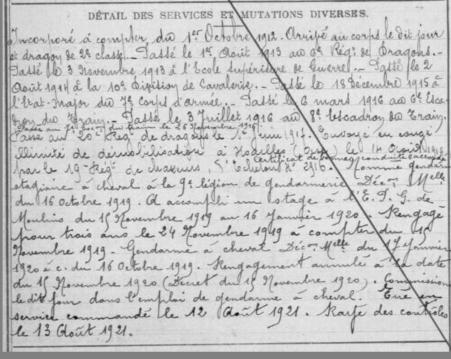 DÉTAIL DES SERVICES ET MUTATIONS DIVERSES.
Incorporé à compter du 1er Octobre 1912. Arrivé au corps le dit jour
et dragon de 2e classe. Passé le 1er Août 1913 au 9e Régt de Dragons.
Passé le 3 Novembre 1913 à l'Ecole Supérieure de Guerre. Passé le 2
Août 1914 à la 10e Division de Cavalerie. Passé le 18 Décembre 1915 à
l'Etat-Major du 7e Corps d'Armée. Passé le 6 mars 1916 au 6e Esca
dron du Train. Passé le 3 Juillet 1916 au 8e Escadron du Train.
Passé au
Passé au 20e Rég. de dragons le juin 1917. Envoyé en congé
illimité de démobilisation à le 14 Août 1919
Certificat de bonne conduite accordé
par le 19e Rég. de Nommé gendarme
stagiaire à cheval à la 9e légion de gendarmerie Déc. Mlle
du 16 Octobre 1919. A accompli un stage à l'E. P. G. de
Moulins du 15 Novembre 1919 au 16 Janvier 1920. Rengagé
pour trois ans le 24 Novembre 1919 à compter du 15
Novembre 1919. Gendarme à cheval Décon Mlle du 17 Janvier
1920 à c. du 16 Octobre 1919. Rengagement annulé à la date
du 15 Novembre 1920 (Décret du 15 Novembre 1920). Commissionné
le dit jour dans l'emploi de gendarme à cheval. Tué en
service commandé le 12 Août 1921. Rayé des contrôles
le 13 Août 1921.